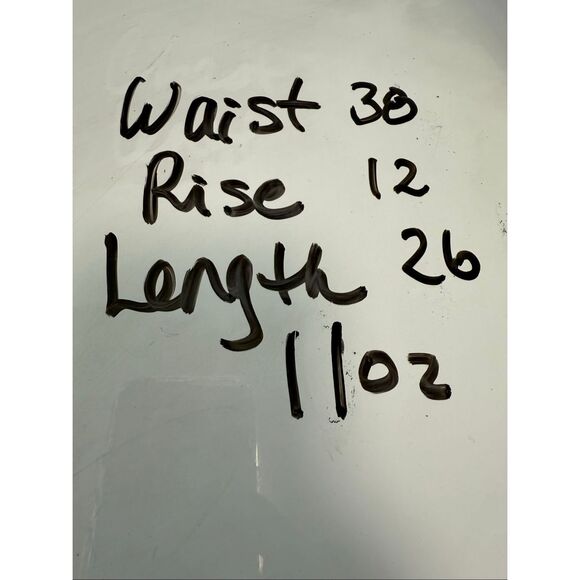 Waist 38
Rise 12
Length 26
11oz